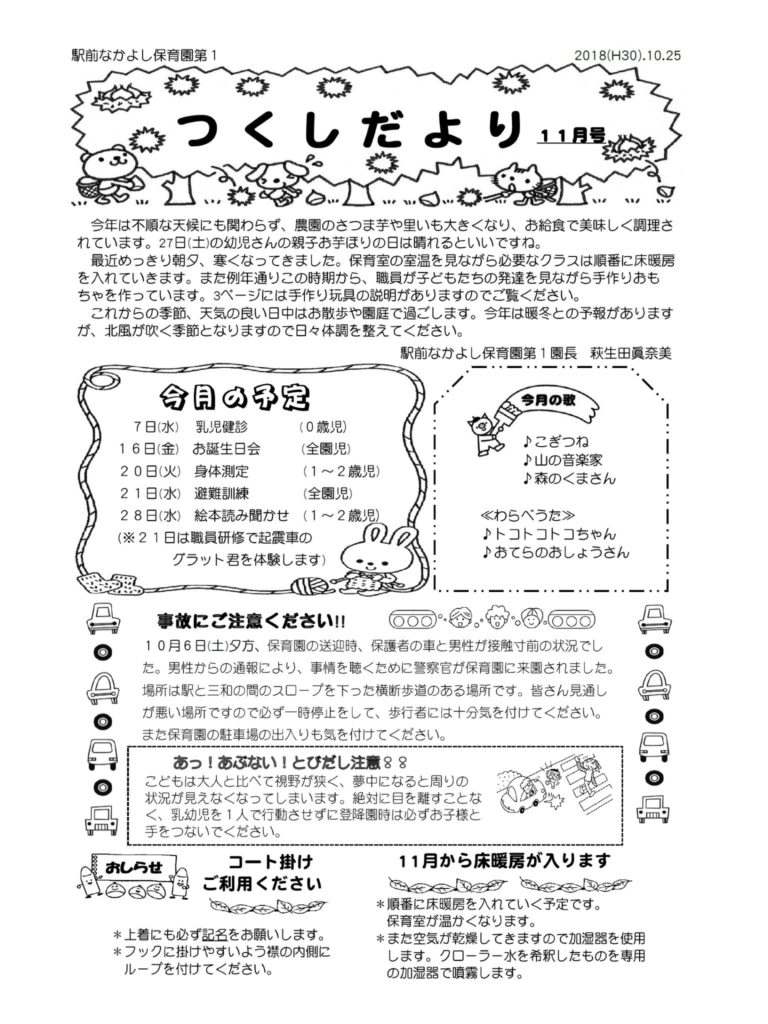 駅前なかよし保育園第1
2018(H30).10.25
つくしだより 11月号
今年は不順な天候にも関わらず、農園のさつま芋や里いも大きくなり、お給食で美味しく調理さ
れています。27日(土)の幼児さんの親子お芋ほりの日は晴れるといいですね。
最近めっきり朝夕、寒くなってきました。保育室の室温を見ながら必要なクラスは順番に床暖房
を入れていきます。また例年通りこの時期から、職員が子どもたちの発達を見ながら手作りおも
ちゃを作っています。3ページには手作り玩具の説明がありますのでご覧ください。
これからの季節、天気の良い日中はお散歩や園庭で過ごします。今年は暖冬との予報があります
が、北風が吹く季節となりますので日々体調を整えてください。
駅前なかよし保育園第1園長 萩生田眞奈美
今月の予定
7日(水) 乳児健診 (0歳児)
16日(金) お誕生日会 (全園児)
20日(火) 身体測定 (1~2歳児)
21日(水) 避難訓練 (全園児)
28日(水) 絵本読み聞かせ (1~2歳児)
(※21日は職員研修で起震車の
グラット君を体験します)
今月の歌
♪こぎつね
♪山の音楽家
♪森のくまさん
≪わらべうた≫
♪トコトコトコちゃん
♪おてらのおしょうさん
事故にご注意ください!!
10月6日(土)夕方、保育園の送迎時、保護者の車と男性が接触寸前の状況でし
た。男性からの通報により、事情を聴くために警察官が保育園に来園されました。
場所は駅と三和の間のスロープを下った横断歩道のある場所です。皆さん見通し
が悪い場所ですので必ず一時停止をして、歩行者には十分気を付けてください。
また保育園の駐車場の出入りも気を付けてください。
あっ!あぶない!とびだし注意
こどもは大人と比べて視野が狭く、夢中になると周りの
状況が見えなくなってしまいます。絶対に目を離すことな
く、乳幼児を1人で行動させずに登降園時は必ずお子様と
手をつないでください。
おしらせ
コート掛け
ご利用ください
*上着にも必ず記名をお願いします。
*フックに掛けやすいよう襟の内側に
ループを付けてください。
11月から床暖房が入ります
*順番に床暖房を入れていく予定です。
保育室が温かくなります。
*また空気が乾燥してきますので加湿器を使用
します。クローラー水を希釈したものを専用
の加湿器で噴霧します。